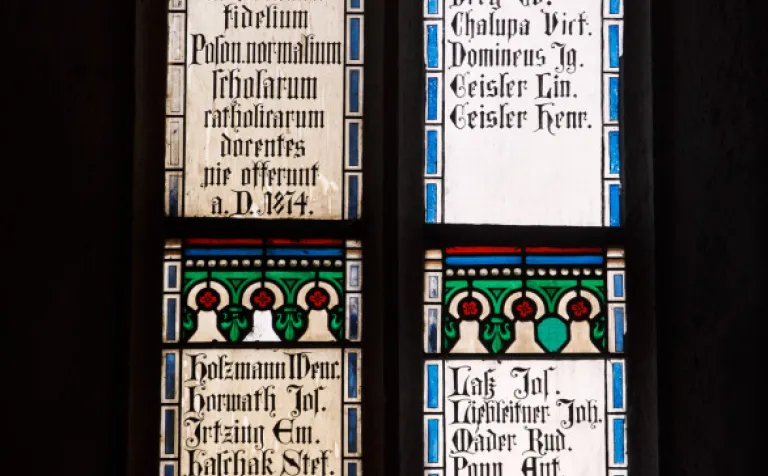 fidelium
Poson.normalium
scholarum
catholicarum
docentes
pie offerunt
a. D. 1874.
Holzmann Wenc.
Horwath Jos.
Irtzing Em.
Haschak Stef.
Chalupa Vict.
Domineus Ig.
Geisler Lin.
Geisler Henr.
Latz Jos.
Liebleitner Joh.
Mader Rud.
Ant.